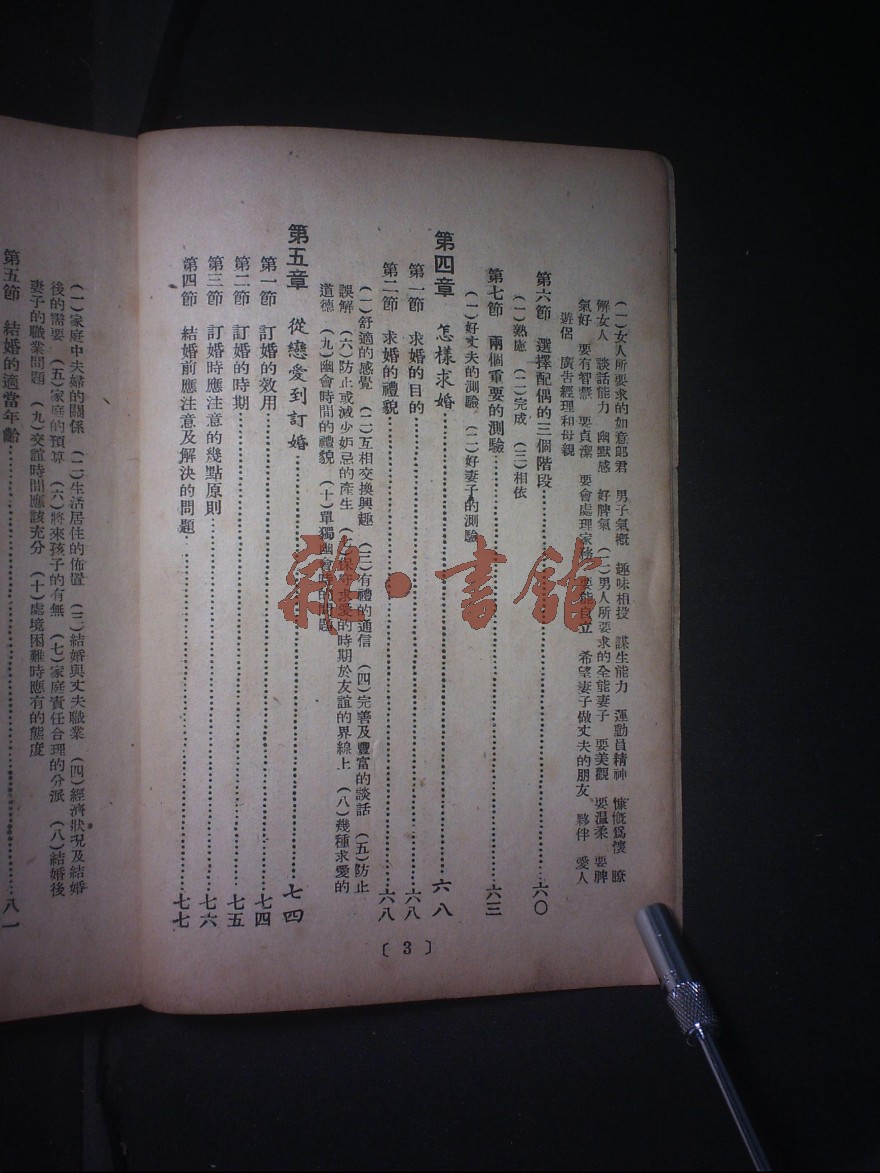 (一)女人所要求的如意郎君　男子氣概　趣味相投　謀生能力　運動員精神　慷慨爲懷　瞭
解女人　談話能力　幽默感　好脾氣　(二)男人所要求的全能妻子　要美觀　要溫柔　要脾
氣好　要有智慧　要貞潔　要會處理家務　要能自立　希望妻子做丈夫的朋友　夥伴　愛人
遊侶　廣告經理和母親
第六節　選擇配偶的三個階段……六〇
(一)熟慮　(二)完成　(三)相依
第七節　兩個重要的測驗……六三
(一)好丈夫的測驗　(二)好妻子的測驗
第四章　怎樣求婚……六八
第一節　求婚的目的……六八
第二節　求婚的禮貌……六八
(一)舒適的感覺　(二)互相交換興趣　(三)有禮的通信　(四)完善及豐富的談話　(五)防止
誤解　(六)防止或減少妒忌的產生　(七)保守求愛的時期於友誼的界線上　(八)幾種求愛的
道德　(九)幽會時間的禮貌　(十)單獨幽會時的問題
第五章　從戀愛到訂婚……七四
第一節　訂婚的效用……七四
第二節　訂婚的時期……七五
第三節　訂婚時應注意的幾點原則……七六
第四節　結婚前應注意及解決的問題……七七
〔3〕
(一)家庭中夫婦的關係　(二)生活居住的佈置　(三)結婚與丈夫職業　(四)經濟狀況及結婚
後的需要　(五)家庭的預算　(六)將來孩子的有無　(七)家庭責任合理的分派　(八)結婚後
妻子的職業問題　(九)交誼時間應該充分　(十)處境困難時應有的態度
第五節　結婚的適當年齡……八一
雜·書館